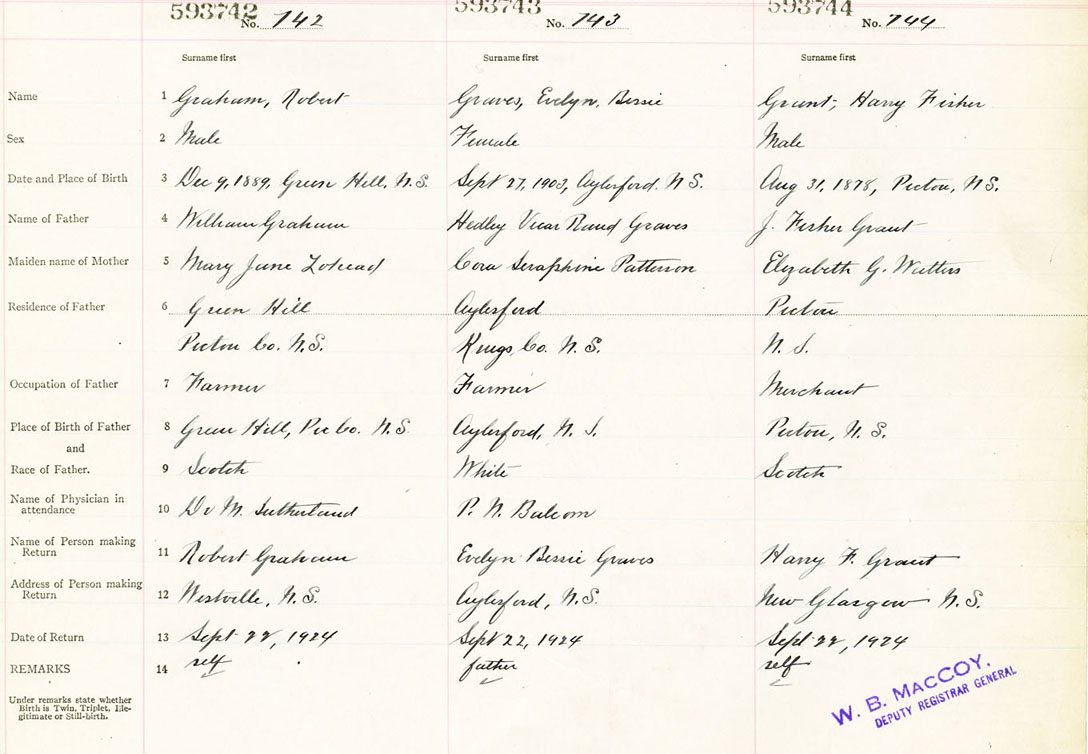 593742 No. 742 593743 No. 743 593744 No. 744
Surname first Surname first Surname first
Name 1 Graham, Robert Graves, Evelyn, Bessie Grant, Harry Fisher
Sex 2 Male Female Male
Date and Place of Birth 3 Dec 9, 1889, Green Hill, N.S. Sept 27, 1903, Aylesford. N.S. Aug 31, 1878, Pictou, N.S.
Name of Father 4 William Graham Hedley Vicar Graves J. Fisher Grant
Maiden name of Mother 5 Mary Jane Cora Seraphine Patterson Elizabeth G. Watters
Residence of Father 6 Green Hill Aylesford Pictou
Pictou Co. N.S. Kings, Co. N.S. N.S.
Occupation of Father 7 Farmer Farmer Merchant
Place of Birth of Father 8 Green Hill, Pic Co. N.S. Aylesford, N.S. Pictou, N.S.
and
Race of Father. 9 Scotch White Scotch
Name of Physician in
attendance 10 Dr M. Sutherland P. N. Balcom
Name of Person making
Return 11 Robert Graham Evelyn Bessie Graves Harry F. Grant
Address of Person making
Return 12 Westville, N.S. Aylesford, N.S. New Glasgow N.S.
Date of Return 13 Sept 22, 1924 Sept 22, 1924 Sept 22, 1924
REMARKS 14 self father self
Under remarks state whether
Birth is Twin, Triplet, Ille-
gitimate or Still-birth.
W. B. MACCOY.
DEPUTY REGISTRAR GENERAL